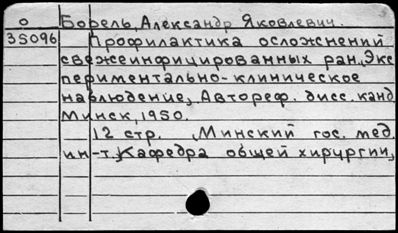 О Борель, Александр Яковлевич.
35096 Профилактика осложнений
свежеинфицированных ран. Экс
периментально-клиническое
наблюдение, Автореф. дисс. канд
Минск, 1950.
12 стр. , Минский гос. мед.
ин-т, Кафедра общей хирургии,